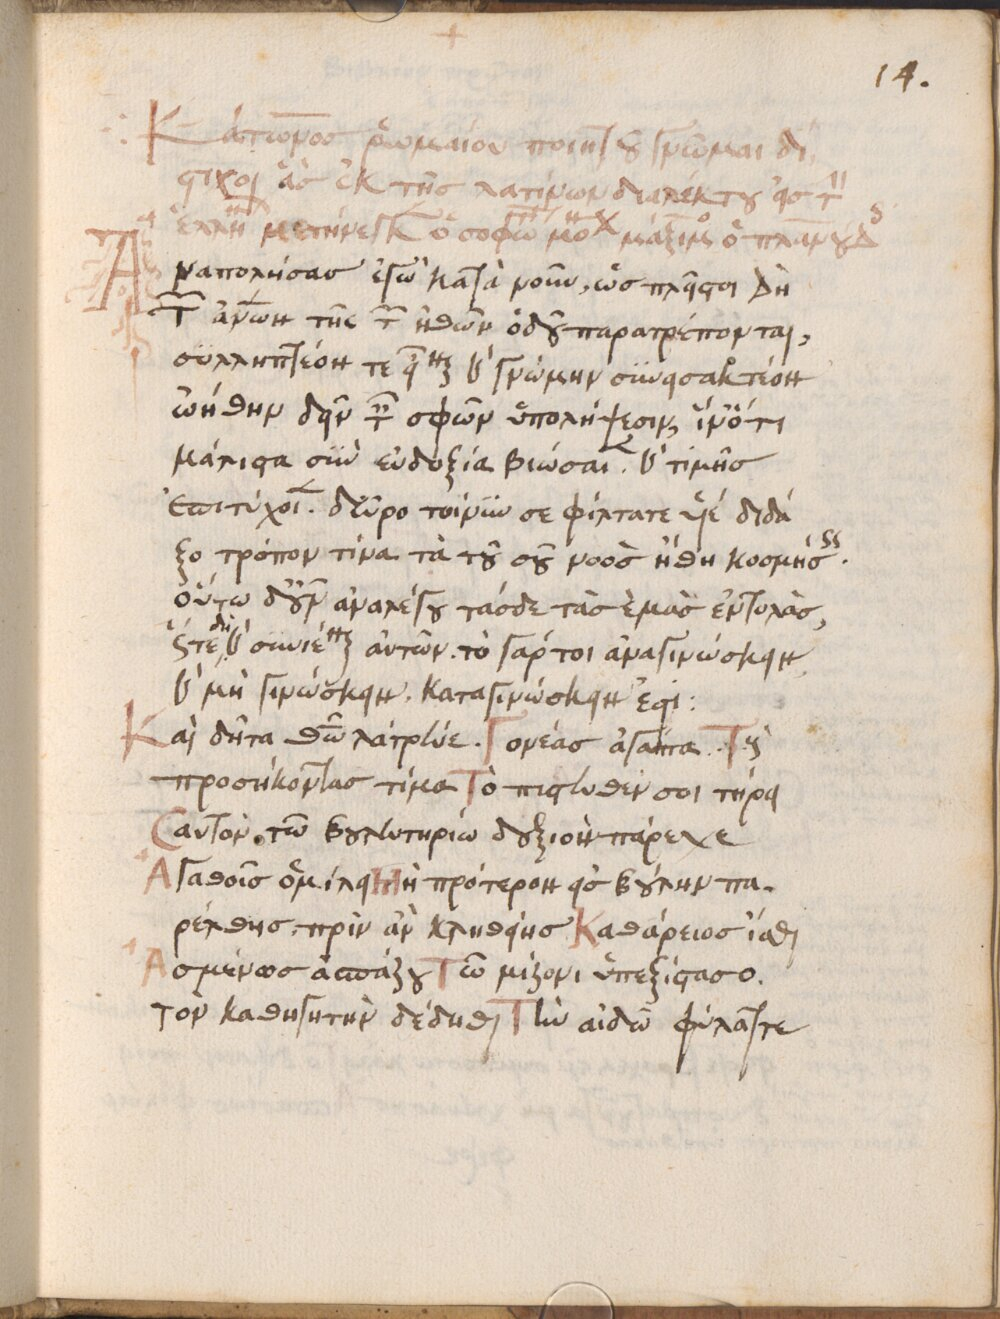 14.
Κάτωνος ῥωμαίου ποιητοῦ γνῶμαι δί
στιχοι ἃς ἐκ τῆς λατίνων διαλέκτου εἰς τὴν
ἑλλην μετήνεγκεν ὁ σοφώτ μοναχ μάξιμο ὁ πλανούδ
Ἀναπολήσας ἐγὼ κατὰ νοῦν, ὡς πλεῖστοι δὴ
τῶν ἀνων τῆς τῶν ἠθῶν ὁδοῦ παρατρέπονται,
συλληπτέον τε εἶναι καὶ γνώμην συνεισακτέον
ὠήθην δεῖν ταῖς σφῶν ὑπολήψεσιν, ἵν' ὅτι
μάλιστα σὺν εὐδοξία βιώσαιεν καὶ τιμῆς
ἐπιτύχοιεν. δεῦρο τοίνυν σε φίλτατε υἱέ διδά
ξο τρόπον τίνα τὰ τοῦ σοῦ νοὸς ἤθη κοσμήσεις.
οὕτω δ' οὖν ἀναλέγου τάσδε τὰς ἐμὰς ἐντολὰς,
ὥστε δὴ καὶ συνιέναι αὐτῶν. τὸ γάρ τοι ἀναγινώσκειν
καὶ μὴ γινώσκειν. καταγινώσκειν ἐστὶ:
Καὶ δῆτα θεῶ λάτρευε. Γονέας ἀγάπα. Τοὺς
προσήκοντας τίμα Τὸ πιστευθέν σοι τήρει
Σαυτὸν τῶ βουλευτηρίω δεξιὸν πάρεχε
Ἀγαθοῖς ὁμίλει Μὴ πρότερον εἰς βουλὴν πα-
ρέλθης, πρὶν ἂν κληθείης Καθάρειος ἴσθι
Ἀσμένως ἀσπάζου Τῶ μείζονι ὑπεξίστασο.
τὸν καθηγητὴν δέδηθι Τὴν αἰδῶ φύλαττε